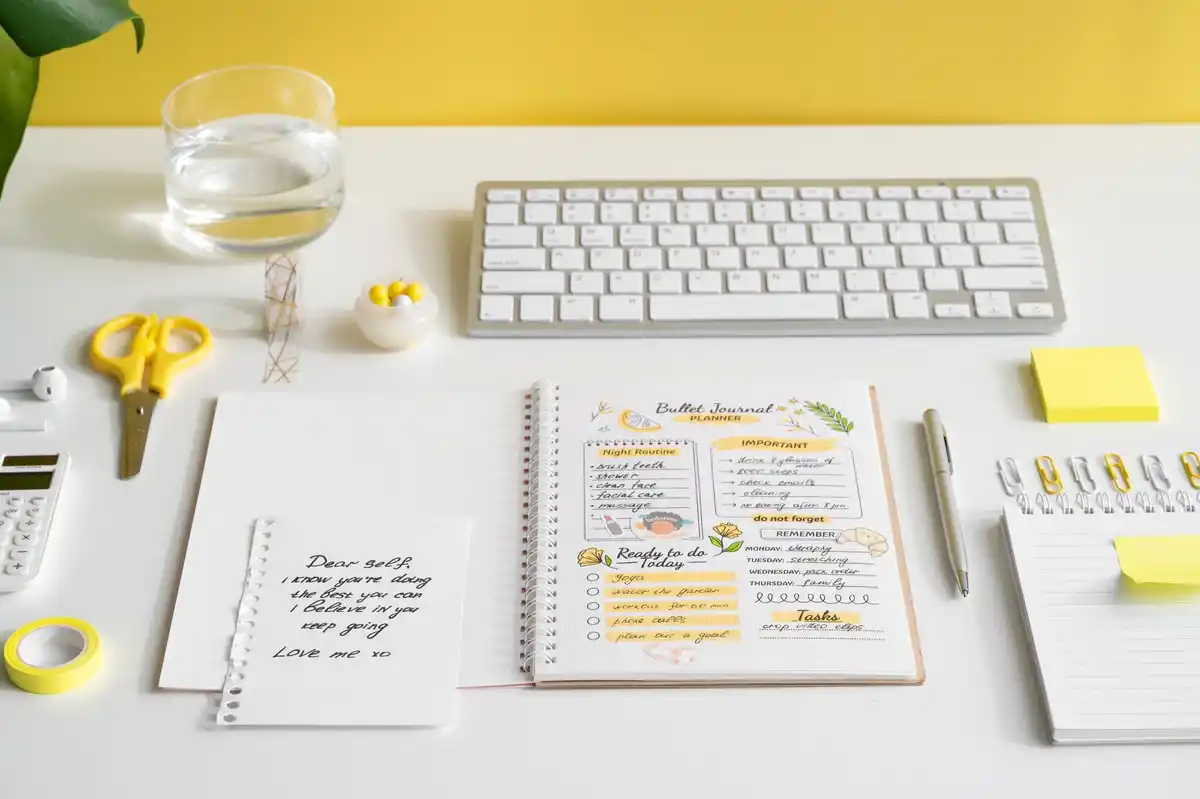 Dear self,
I know you're doing
the best you can
I believe in you
keep going
Love me xo
Bullet Journal
PLANNER
Night Routine
brush teeth
shower
clean face
facial care
massage
IMPORTANT
drink 8 glasses of
water
8000 steps
check emails
cleaning
no eating after 8 pm
do not forget
REMEMBER
MONDAY: theraphy
TUESDAY: stretching
WEDNESDAY: pack order
THURSDAY: family
Ready to do
Today
yoga
water the garden
workout for 60 min
phone calls
plan out a goal
Tasks
crop video clips